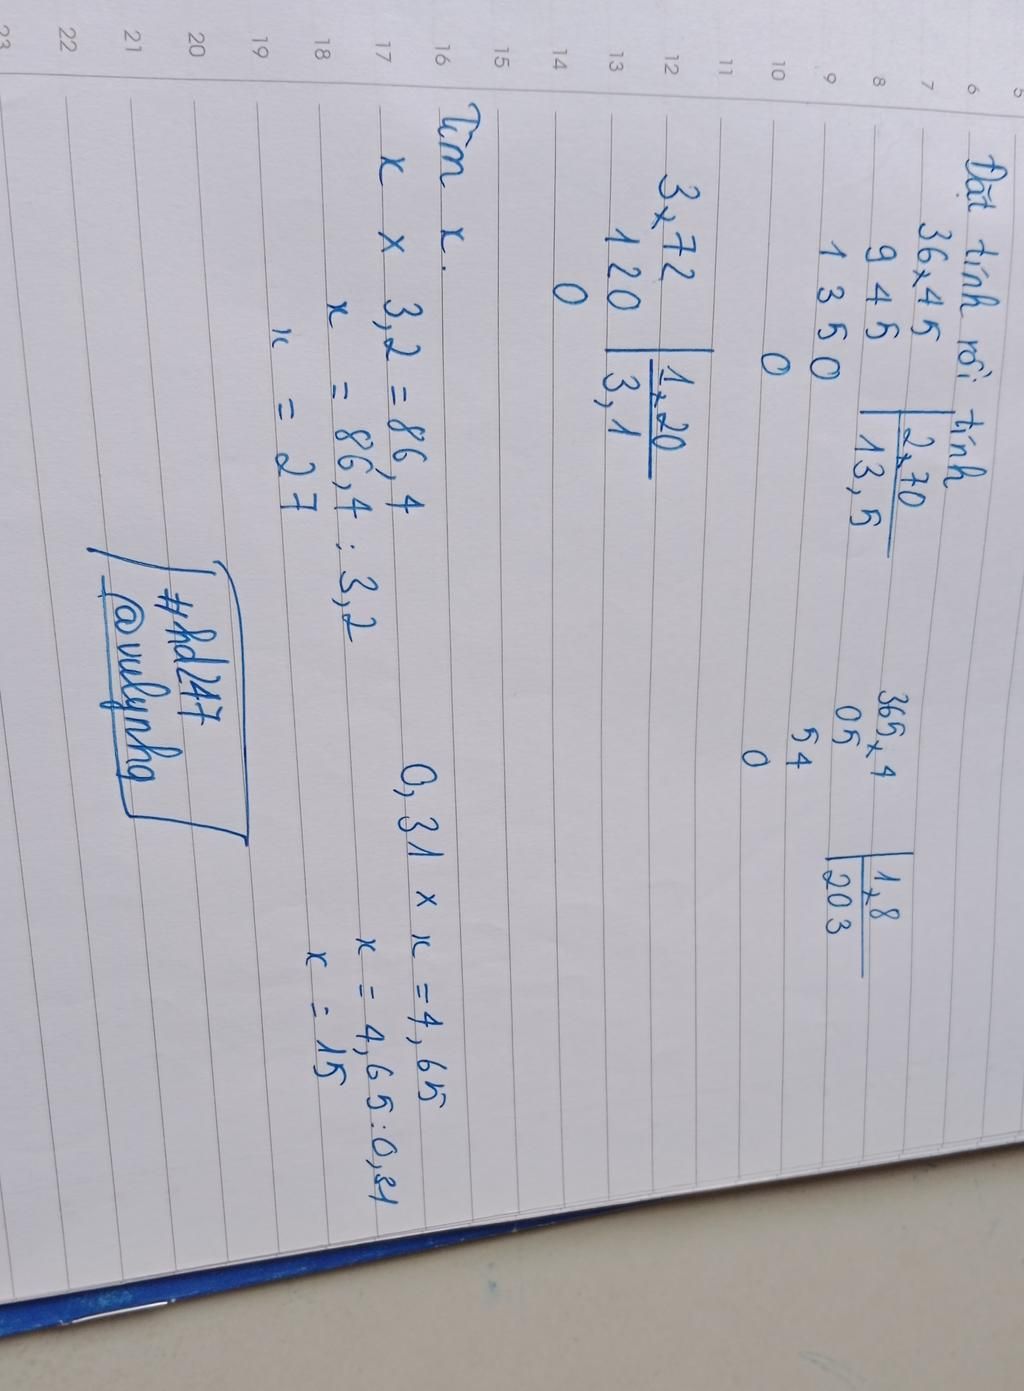 5
6
7
8
9
10
11
12
13
14
15
16
17
18
19
20
21
22
23
Đặt tính rồi tính
36,45 2,70
945 13,5
1350
0
365,4 1,8
05 203
54
0
3,72 1,20
120 3,1
0
Tìm x.
x x 3,2 = 86,4
x = 86,4 : 3,2
x = 27
0,31 x x = 4,65
x = 4,65 : 0,31
x = 15
#hd247
@vulynhq